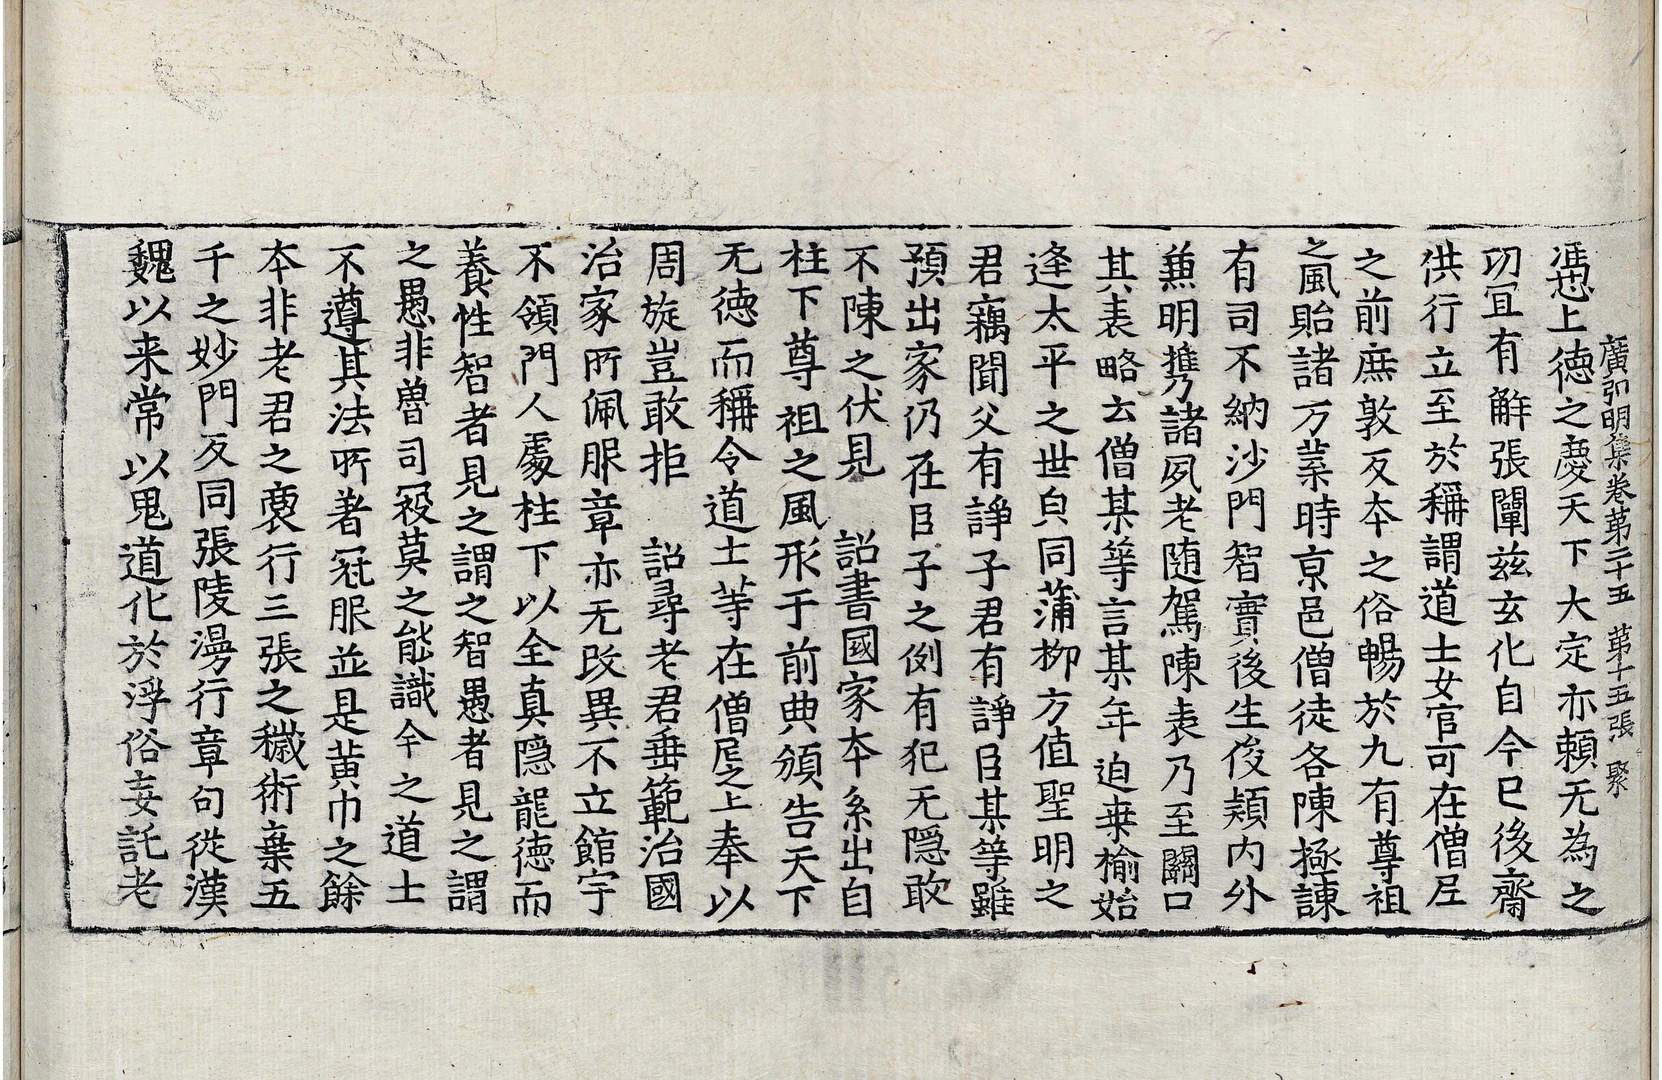 廣弘明集卷第二十五　第十五張　聚
馮上德之慶天下大定亦頼无為之
㓛冝有解張闡茲玄化自今巳後齋
供行立至於稱謂道士女官可在僧尼
之前庶敦反夲之俗暢於九有尊祖
之風貽諸万葉時京邑僧徒各陳極諫
有司不納沙門智實後生俊頴内外
兼明攜諸夙老随駕陳表乃至關口
其表略云僧某等言某年迫桒榆始
逢太平之世皃同蒲柳方值聖明之
君竊聞父有諍子君有諍臣某等雖
預出家仍在臣子之例有犯无隠敢
不陳之伏見　詔書國家本系出自
柱下尊祖之風形于前典頒告天下
无德而稱令道士等在僧尼之上奉以
周旋豈敢拒　詔尋老君垂範治國
治家所佩服章亦无改異不立館宇
不領門人處柱下以全真隠龍德而
養性智者見之謂之智愚者見之謂
之愚非魯司寇莫之能識今之道士
不遵其法所著冠服並是黄巾之餘
夲非老君之裔行三張之穢術棄五
千之妙門反同張陵漫行章句從漢
魏以来常以鬼道化於浮俗妄託老